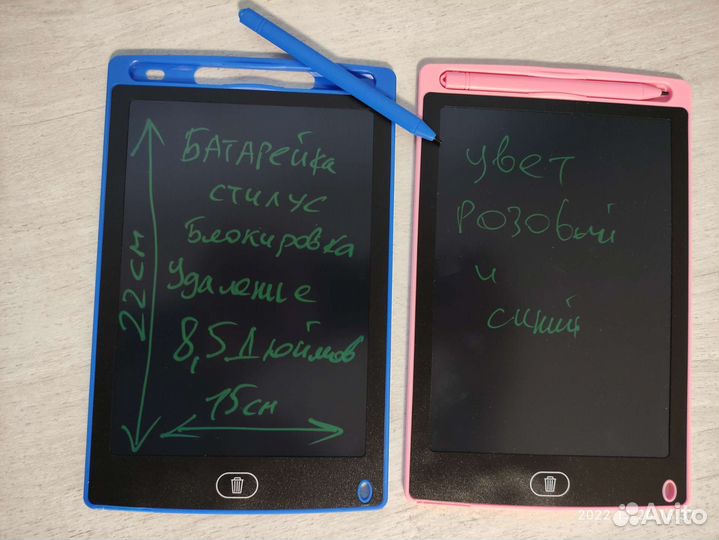 БАТАРЕЙКА
стилус
Блокировка
Удаление
8,5 Дюймов
15см
22см
цвет
РОЗОВЫЙ
и
синий
Avito